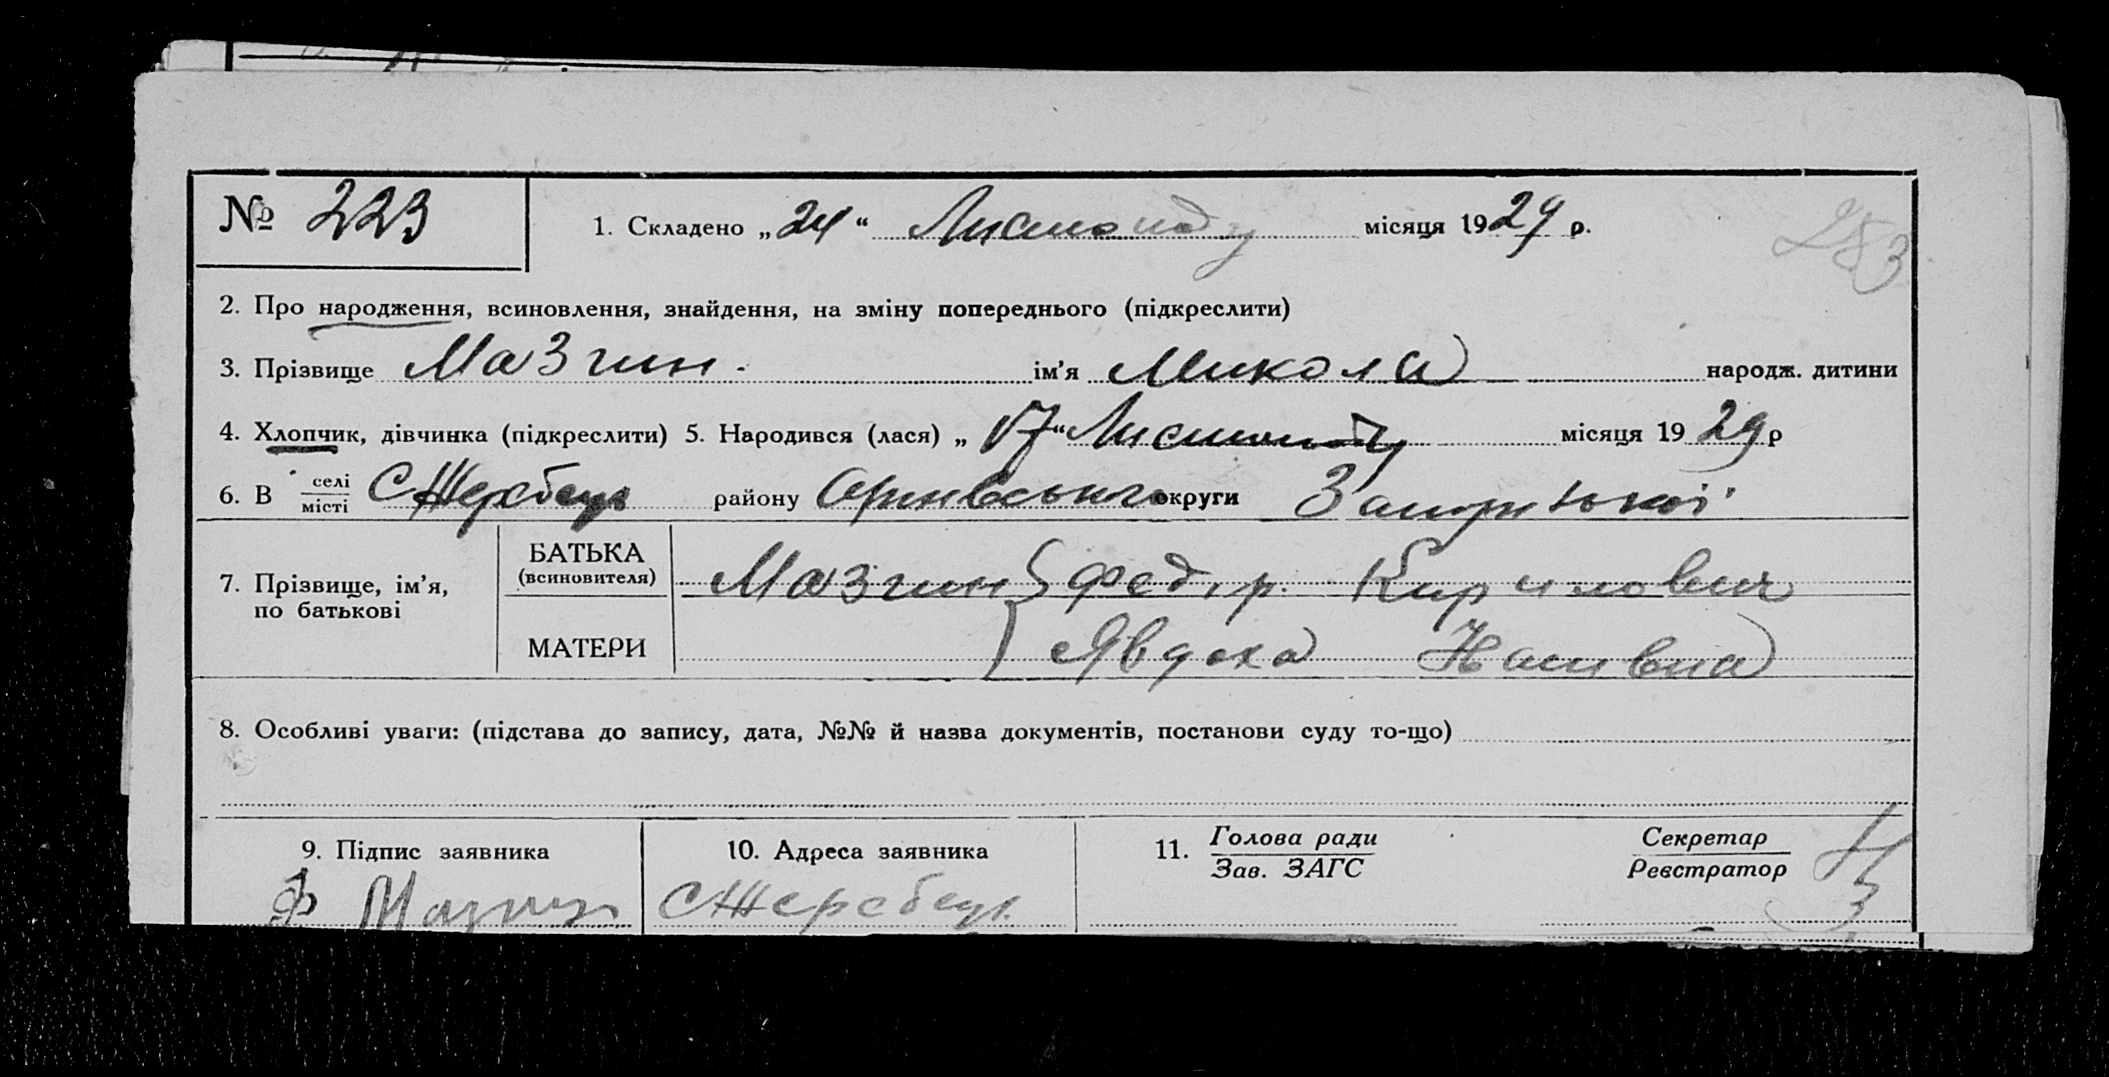 № 223
1. Складено „24“ Листопаду місяця 1929 р.
283
2. Про народження, всиновлення, знайдення, на зміну попереднього (підкреслити)
3. Прізвище Мазгин. ім’я Микола народж. дитини
4. Хлопчик, дівчинка (підкреслити) 5. Народився (лася) „17“ Листопаду місяця 1929 р
6. В селі місті С Жеребець району Оріхівського округи Запорізької
7. Прізвище, ім’я, по батькові
БАТЬКА (всиновителя) Мазгин Федір. Кирилович
МАТЕРИ Явдоха
8. Особливі уваги: (підстава до запису, дата, №№ й назва документів, постанови суду то-що)
9. Підпис заявника
10. Адреса заявника
11. Голова ради
Зав. ЗАГС
Секретар
Реєстратор
Ф Мазгин
С Жеребець